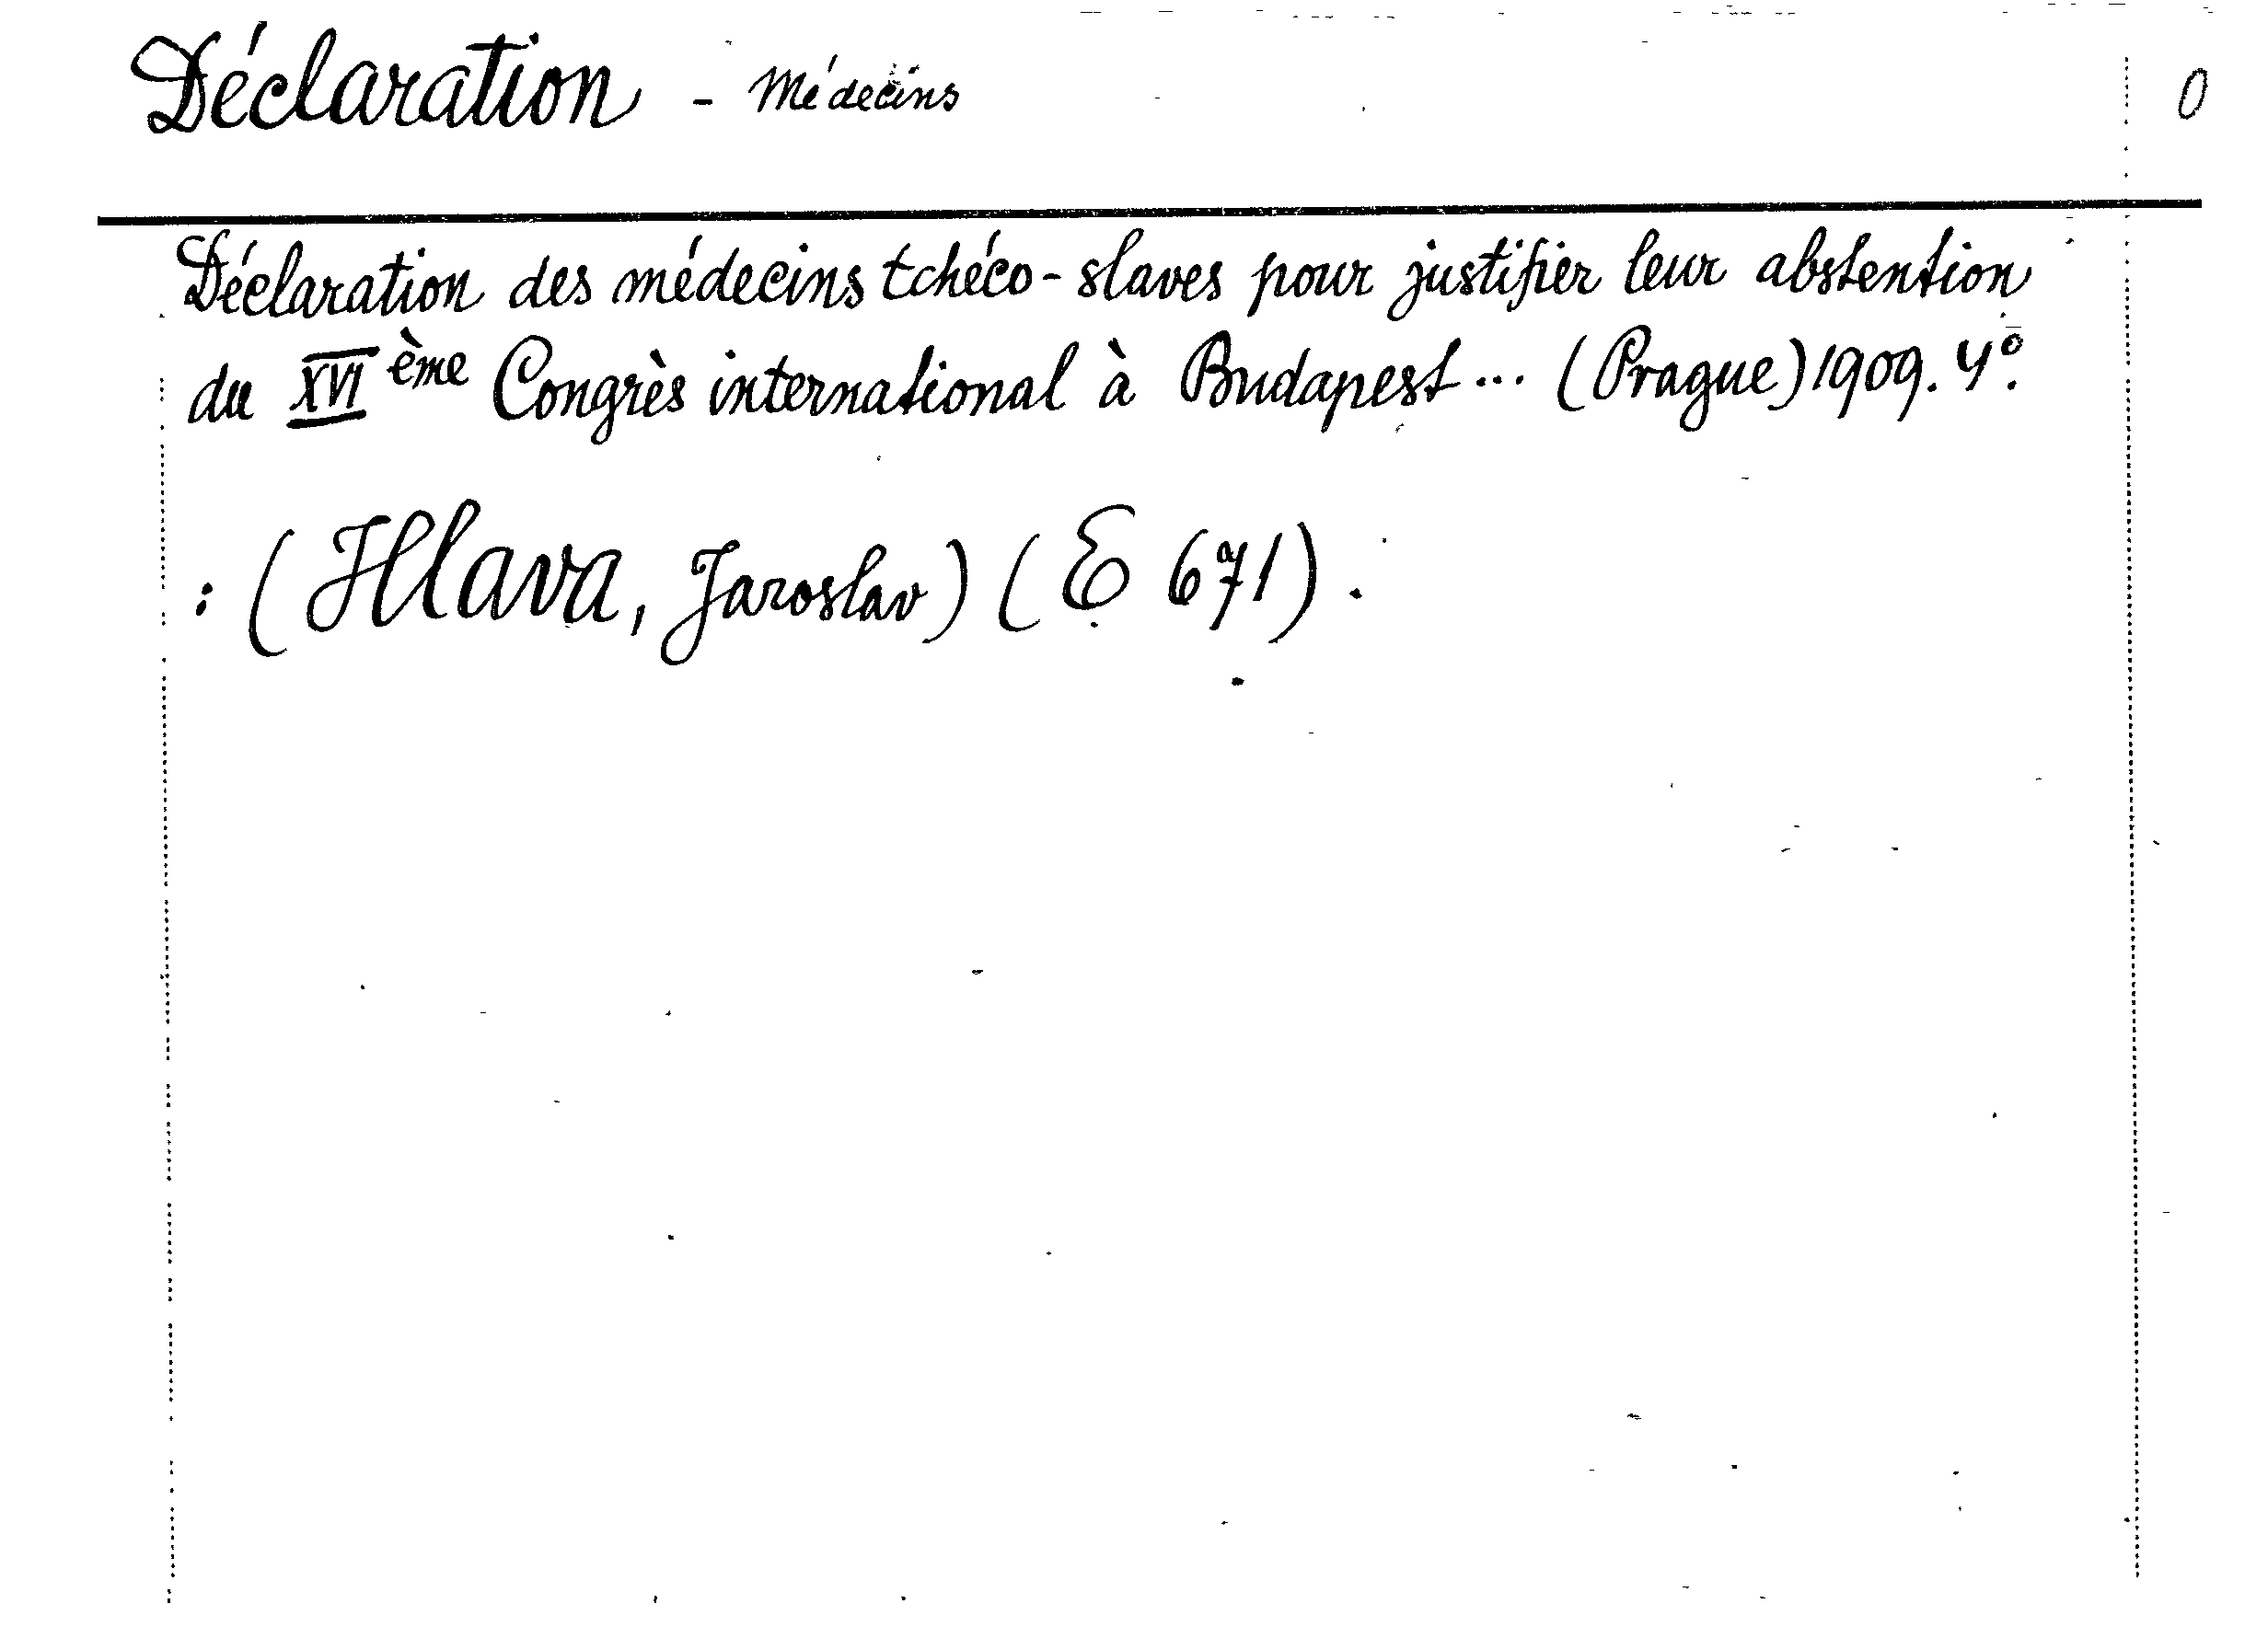 Déclaration - Médecins 0
Déclaration des médecins tchéco-slaves pour justifier leur abstention
du XVI ème Congrès international à Budapest ... (Prague) 1909. 4°.
: (Hlava, Jaroslav) (E 671).